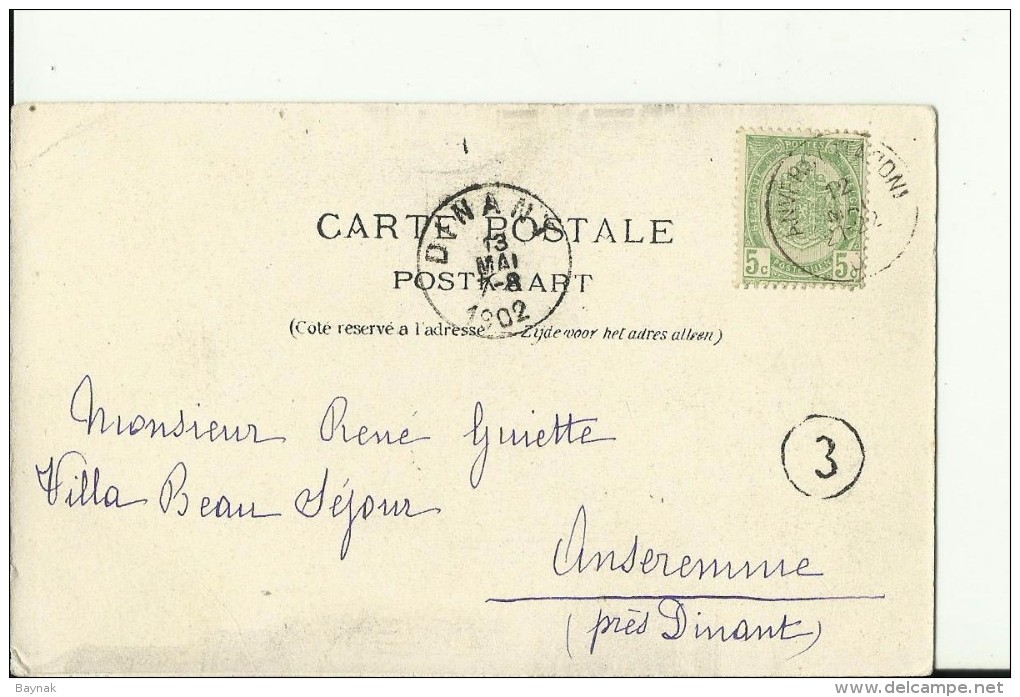 CARTE POSTALE
POSTKAART
(Coté reservé a l'adresse) Zijde voor het adres alleen)
DINANT
13
MAI
7-8
1902
POSTES
5c
ANVERS
Monsieur René Guiette
Villa Beau Séjour
3
Anseremme
(près Dinant)
Baynak
delcampe.net